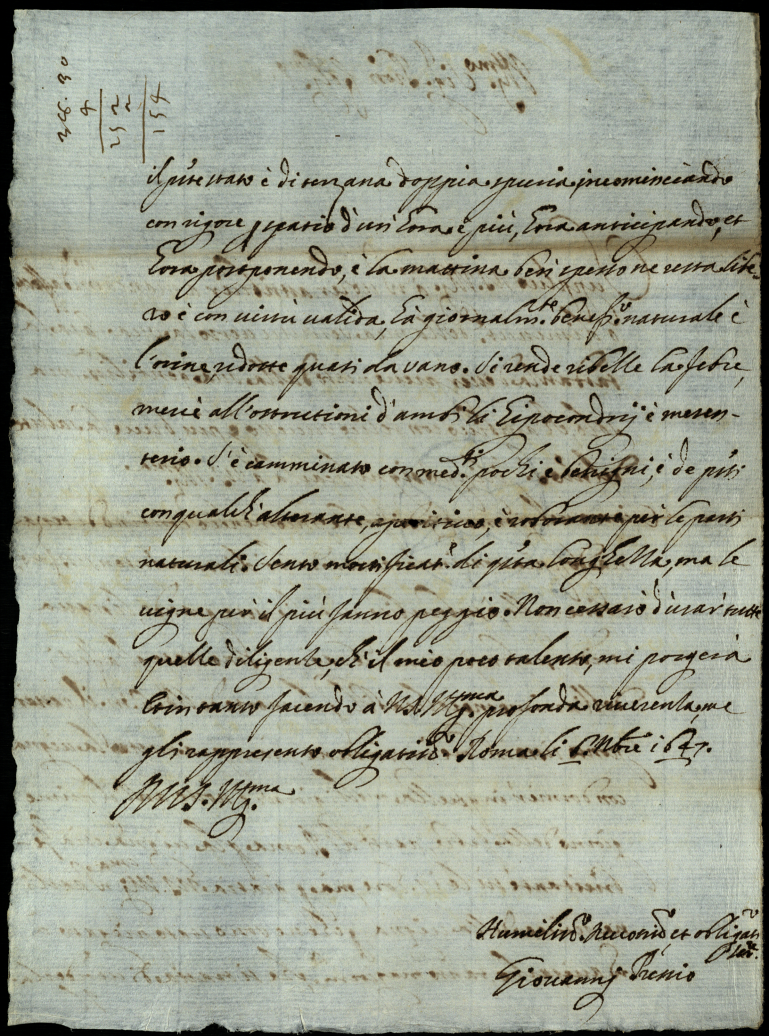 248.30
4
252
2
154
il p'nte stato è di terzana doppia spuria, incominciando
con rigore spatio d'un hora e più, hora anticipando, et
hora postponendo, è la mattina ben spesso ne resta libe-
ro è con virtù valida, hà giornalm.te benef.o naturale è
l'orine, ridotte quasi da vano. Si rende ribelle la febre,
mercè all'ostruttioni d'ambi li hipocondrij è mesen-
terio. S'è camminato con med.ti pochi è benigni, è de p'nti
con qualch'alterante, aperitivo, è roborante per le parti
naturali. Sento mortificat.e di q'sta lunghella, ma le
vigne per il più fanno peggio. Non cessarò d'usar' tutte
quelle diligenze, ch'il mio poco talento, mi porgerà
Et in tanto facendo à V.S. Ill.ma profonda riverenza, me
gli rappresento obligatiss.o Roma li 8bre 1647.
Di V.S. Ill.ma
Humiliss.o Devotiss.o, et obligatiss.o
Ser.
Giovanni Trenio